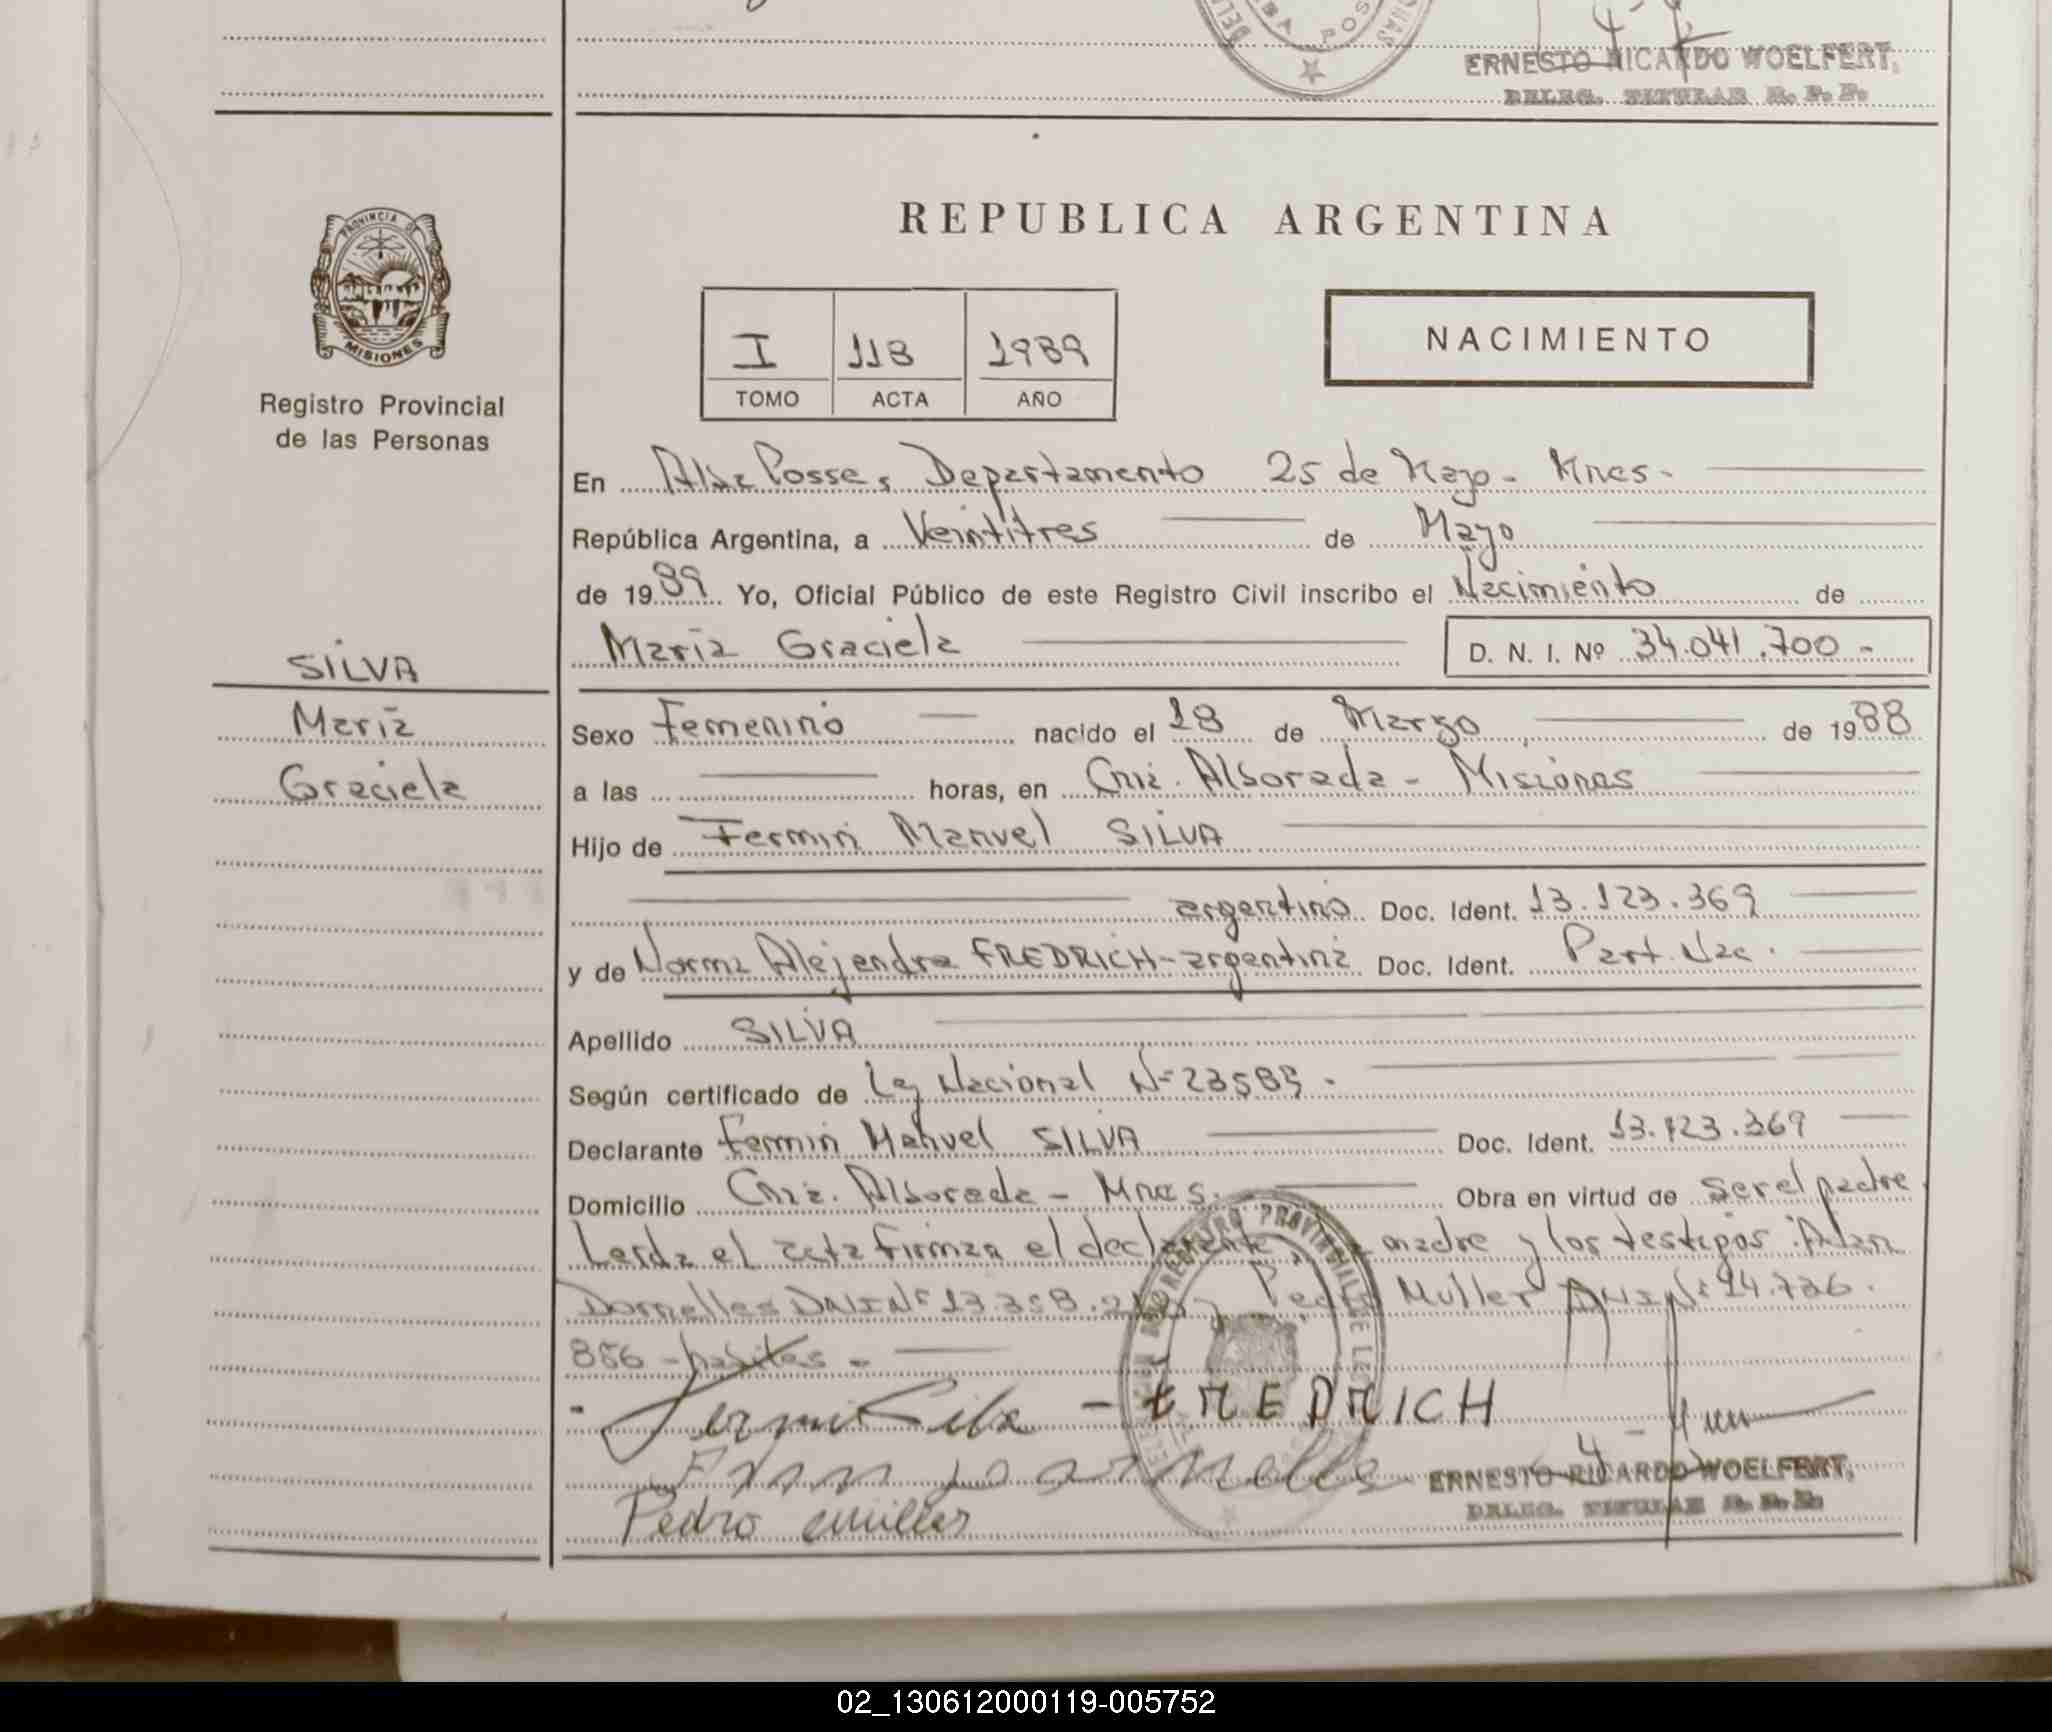 ERNESTO RICARDO WOELFERT,
DELEG. TITULAR R. P. P.
PROVINCIA DE
MISIONES
Registro Provincial
de las Personas
SILVA
María
Graciela
REPUBLICA ARGENTINA
I 118 1989
TOMO ACTA AÑO
NACIMIENTO
En Alba Posse, Departamento 25 de Mayo - Mnes -
República Argentina, a Veintitres de Mayo
de 1989 Yo, Oficial Público de este Registro Civil inscribo el Nacimiento de
María Graciela D. N. I. Nº 34.041.700 -
Sexo Femenino nacido el 18 de Marzo, de 1988
a las horas, en Cnia. Alborada - Misiones
Hijo de Fermin Manuel SILVA
argentino Doc. Ident. 13.123.369
y de Norma Alejandra FREDRICH - argentina Doc. Ident. Part. Nac.
Apellido SILVA
Según certificado de Ley Nacional Nº 23585 -
Declarante Fermin Manuel SILVA Doc. Ident. 13.123.369
Domicilio Cnia. Alborada - Mnes. Obra en virtud de ser el padre.
Leida el acta firman el declarante, la madre y los testigos: Adan
Dornelles DNI Nº 13.358. y Pedro Muller DNI Nº 14.736.
856 - habiles -
- Fermin Silva - FREDRICH
Adan Dornelles
Pedro Muller
ERNESTO RICARDO WOELFERT,
DELEG. TITULAR R. P. P.
02_130612000119-005752